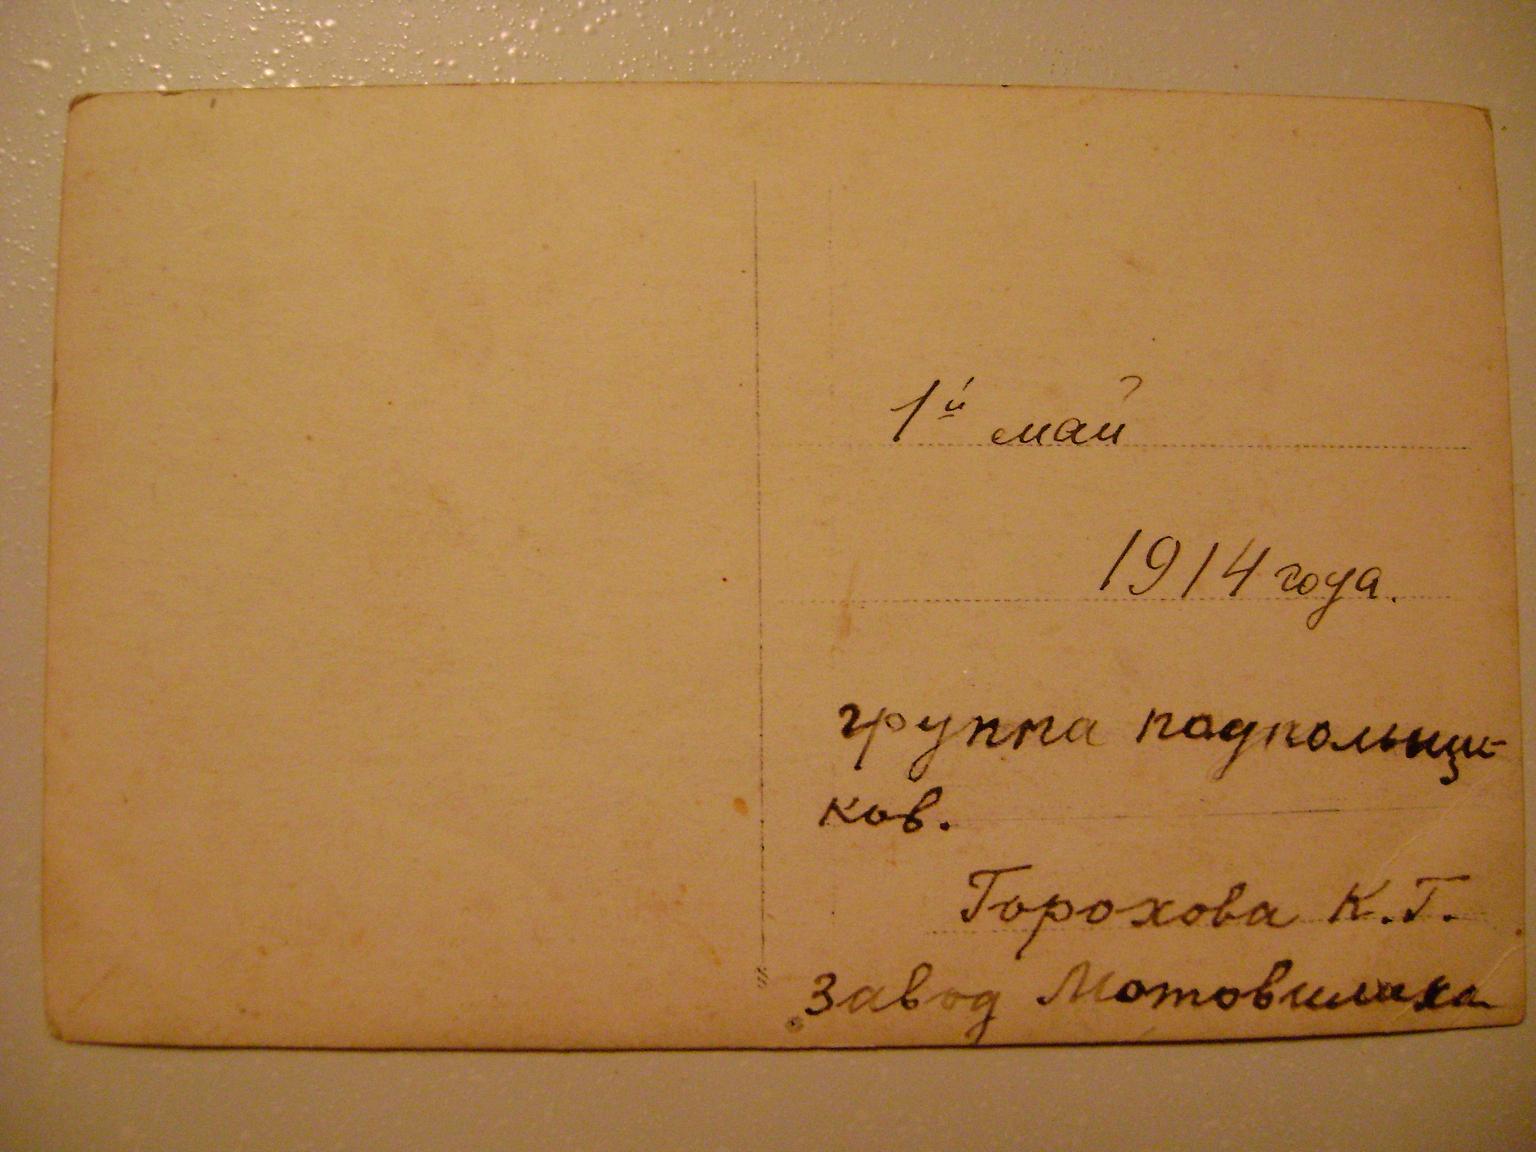 1й май
1914 года.
группа подпольщи-
ков.
Горохова К.Г.
Завод Мотовилиха